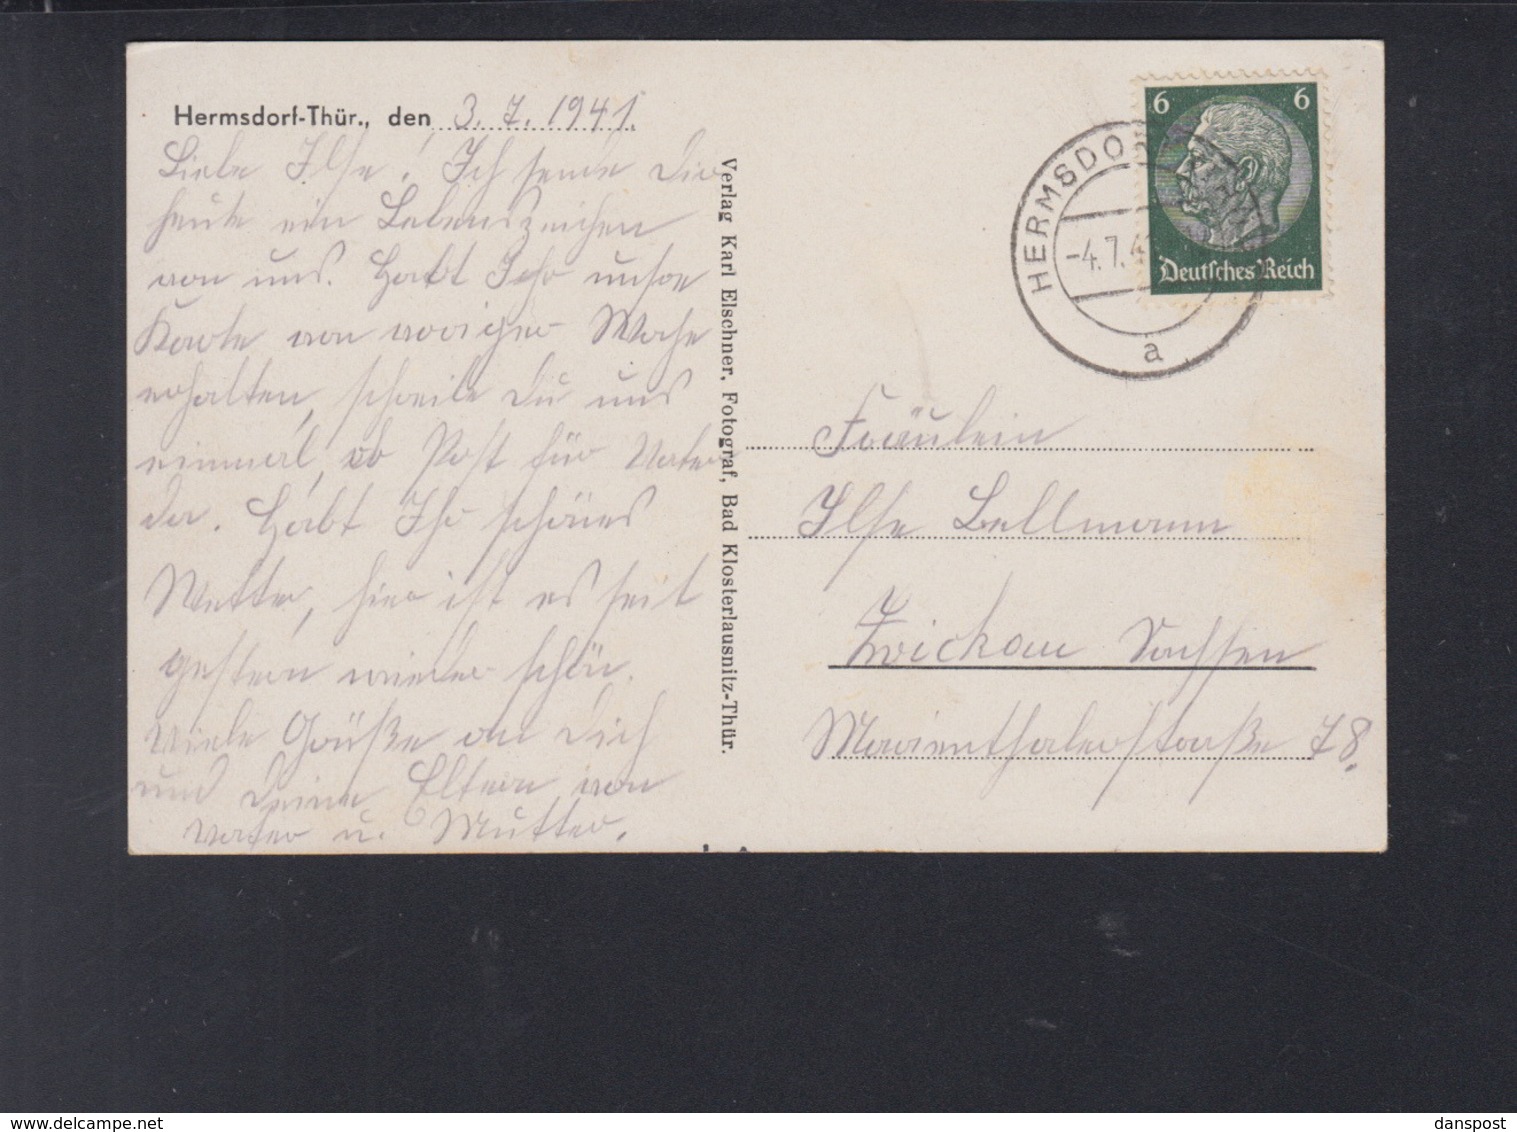 Hermsdorf-Thür., den 3. 7. 1941.
Liebe Ilse! Ich sende Dir
heute ein Lebenszeichen
von uns. Habt Ihr unsre
Karte von voriger Woche
erhalten, schreibe Du uns
einmal, ob Post für Vater
da. Habt Ihr schönes
Wetter, hier ist es seit
gestern wieder schön.
Viele Grüße an Dich
und Deine Eltern von
Vater u. Mutter.
Verlag Karl Elschner, Fotograf, Bad Klosterlausnitz-Thür.
6 6
Deutsches Reich
HERMSDO
-4.7.4
a
Fräulein
Ilse Bellmann
Zwickau Sachsen
Marienthalerstraße 78.
delcampe.net
danspost